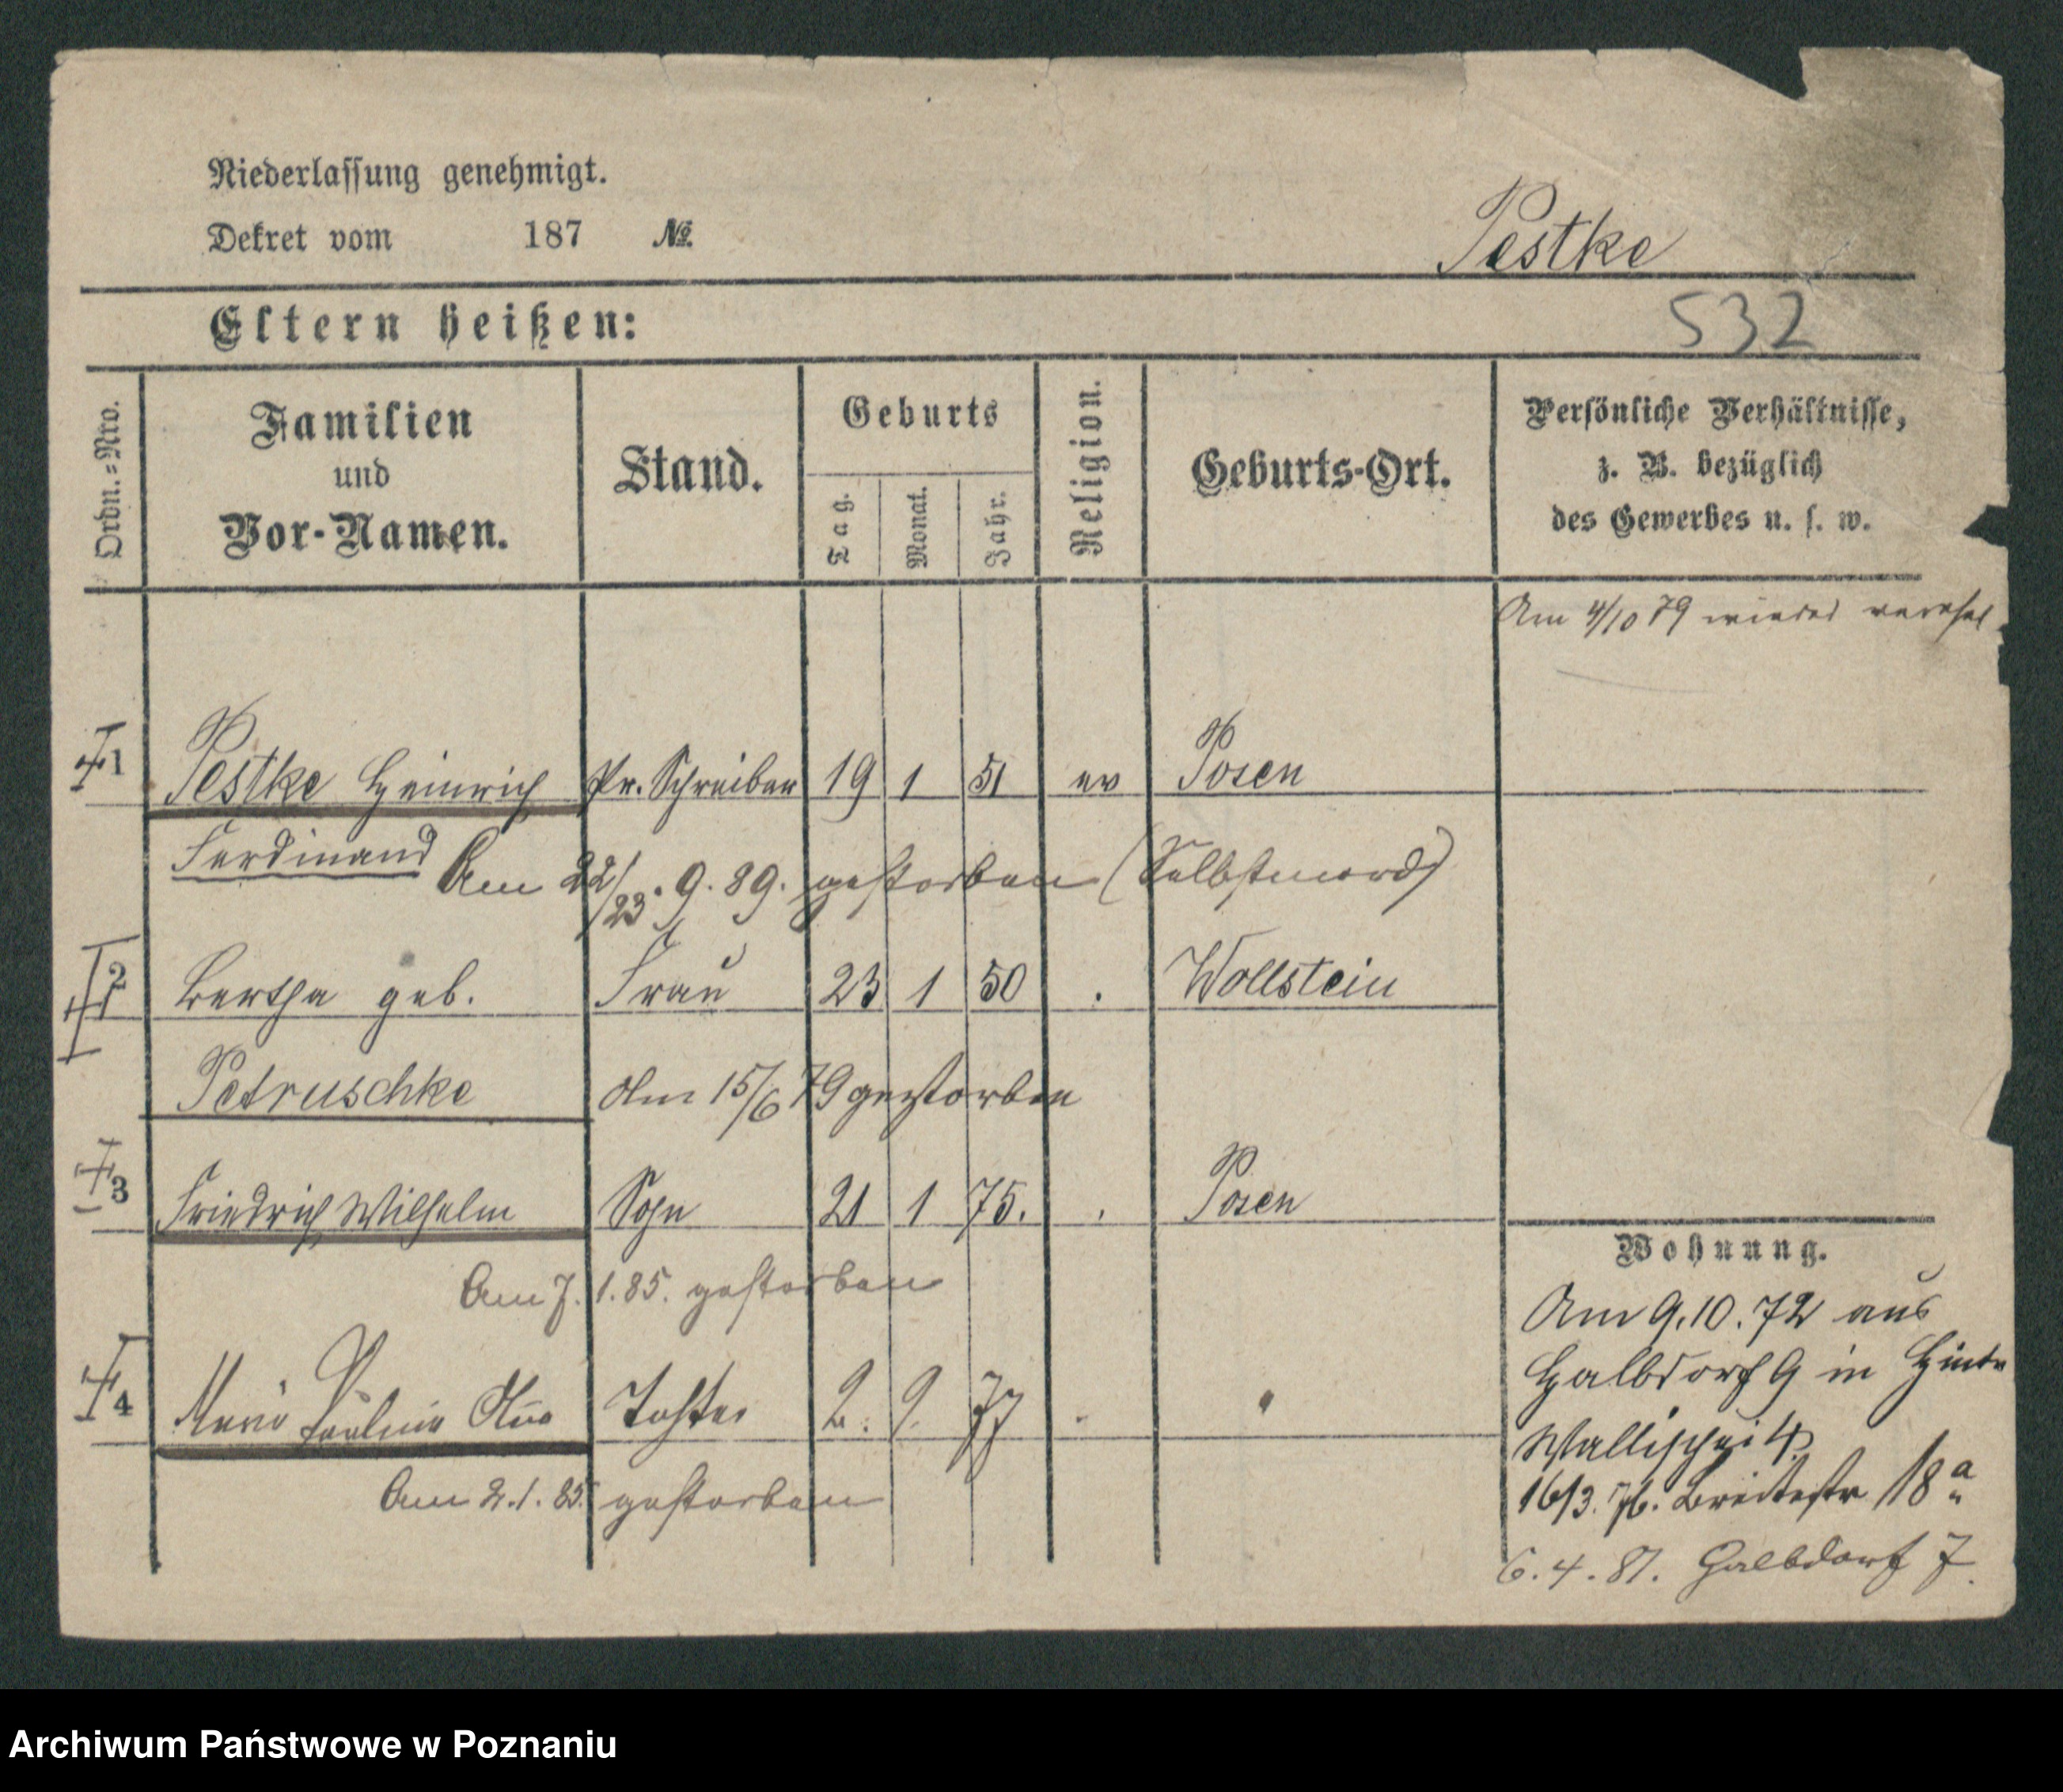 Niederlassung genehmigt.
Dekret vom 187 No.
Pestke
Eltern heißen:
532
Ordn.-Nro.
Familien und Vor-Namen.
Stand.
Geburts
Tag. Monat. Jahr.
Religion.
Geburts-Ort.
Persönliche Verhältnisse,
z. B. bezüglich
des Gewerbes u. s. w.
Am 4/10 79 wieder verehel
1 Pestke Heinrich Pr. Schreiber 19 1 51 ev Posen
Ferdinand Am 22/23. 9. 89. gestorben (Selbstmord)
2 Bertha geb. Frau 23 1 50 . Wollstein
Petruschke Am 15/6 79 gestorben
3 Friedrich Wilhelm Sohn 21 1 75. . Posen
Am 7. 1. 85. gestorben
4 Marie Pauline Tochter 2. 9. 77
Am 2. 1. 85. gestorben
Wohnung.
Am 9. 10. 72 aus
Halbdorf 9 in Hintr
Wallischei 4
16/3. 76. Breitestr 18a
6. 4. 81. Halbdorf 7.
Archiwum Państwowe w Poznaniu